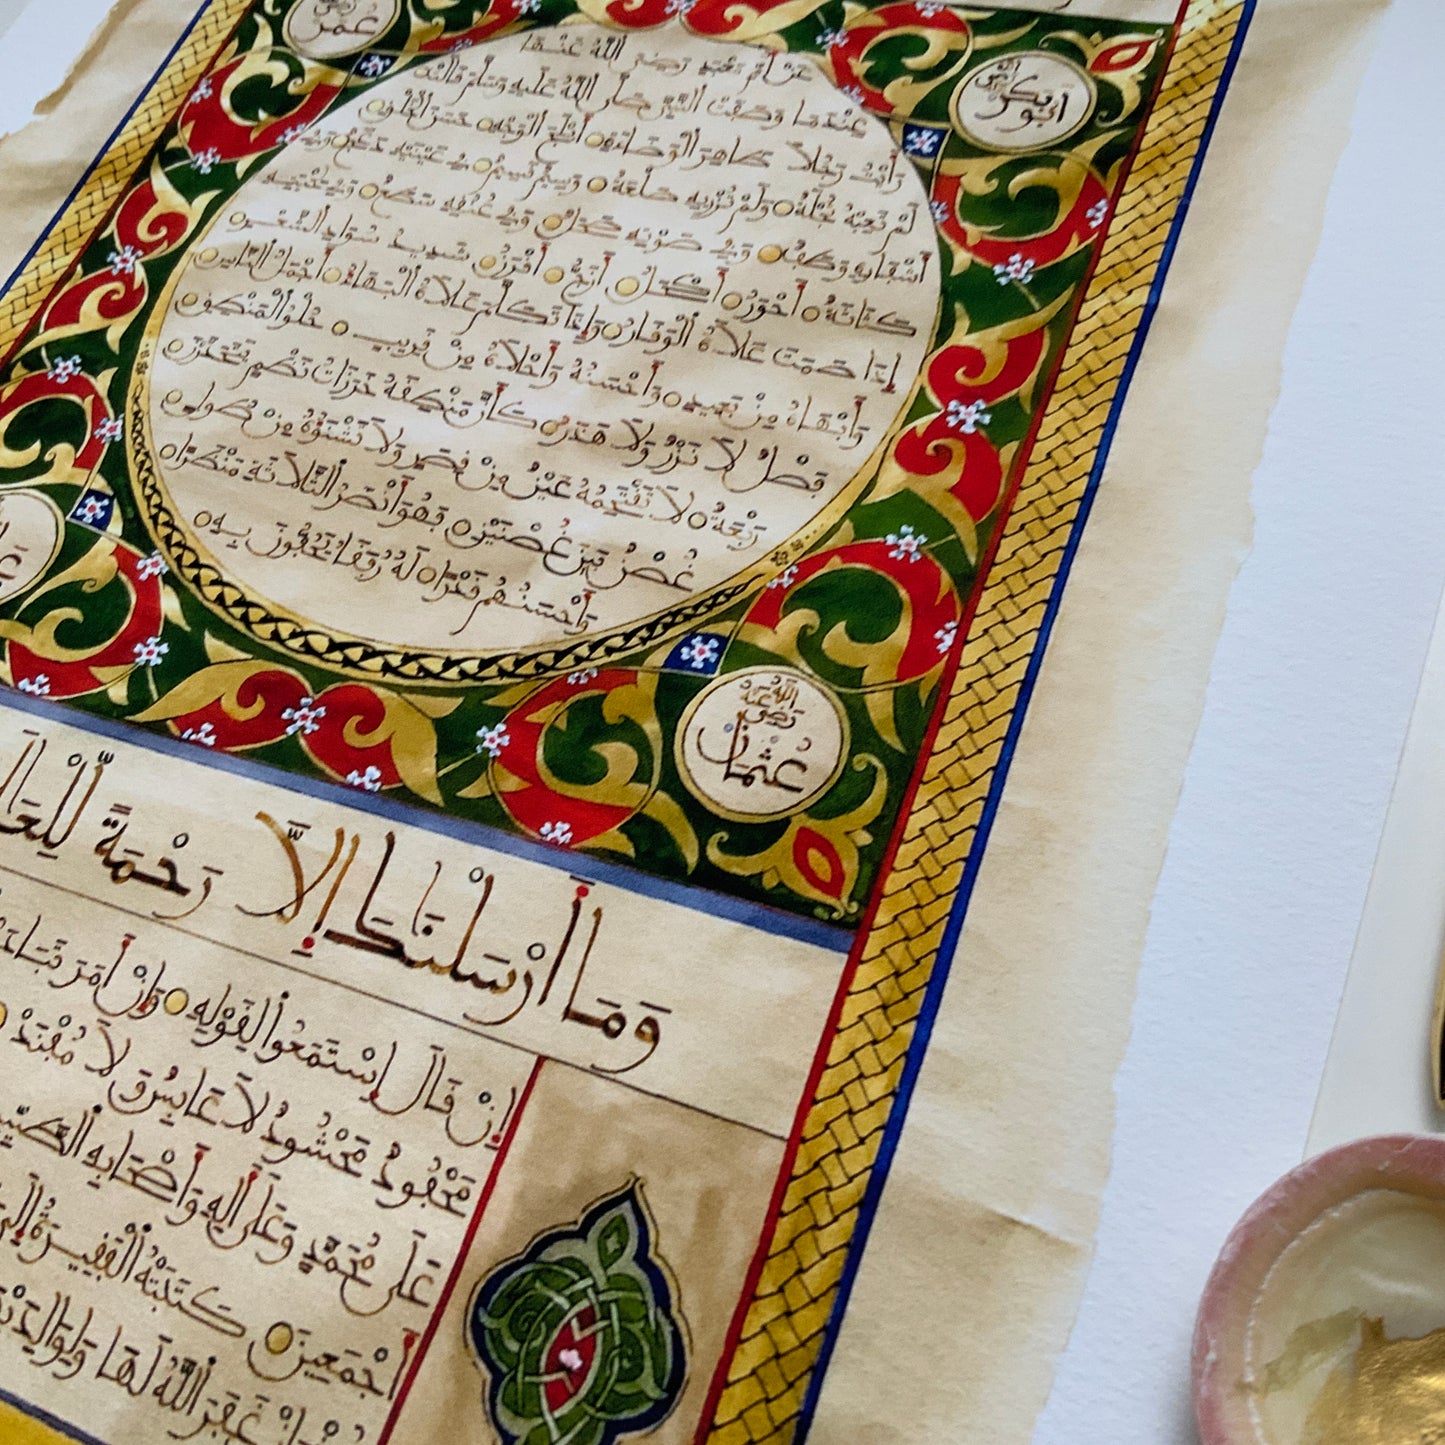 عُمَرُ
أَبُو بَكْرٍ
عَنْ أُمِّ مَعْبَدٍ رَضِيَ اللَّهُ عَنْهَا
عِنْدَمَا وَصَفَتْ النَّبِيَّ صَلَّى اللَّهُ عَلَيْهِ وَسَلَّمَ قَالَتْ
رَأَيْتُ رَجُلاً ظَاهِرَ الْوَضَاءَةِ أَبْلَجَ الْوَجْهِ حَسَنَ الْخَلْقِ
لَمْ تَعِبْهُ ثُجْلَةٌ وَلَمْ تُزْرِيهِ صَعْلَةٌ وَسِيمٌ قَسِيمٌ فِي عَيْنَيْهِ دَعَجٌ وَفِي
أَشْفَارِهِ وَطَفٌ وَفِي صَوْتِهِ صَحَلٌ وَفِي عُنُقِهِ سَطَعٌ وَفِي لِحْيَتِهِ
كَثَاثَةٌ أَحْوَرُ أَكْحَلُ أَزَجُّ أَقْرَنُ شَدِيدُ سَوَادِ الشَّعْرِ
إِذَا صَمَتَ عَلَاهُ الْوَقَارُ وَإِذَا تَكَلَّمَ عَلَاهُ الْبَهَاءُ أَجْمَلُ النَّاسِ
وَأَبْهَاهُ مِنْ بَعِيدٍ وَأَحْسَنُهُ وَأَحْلَاهُ مِنْ قَرِيبٍ حُلْوُ الْمَنْطِقِ
فَصْلٌ لَا نَزْرٌ وَلَا هَذَرٌ كَأَنَّ مَنْطِقَهُ خَرَزَاتُ نَظْمٍ يَتَحَدَّرْنَ
رَبْعَةٌ لَا تَقْتَحِمُهُ عَيْنٌ مِنْ قِصَرٍ وَلَا تَشْنَؤُهُ مِنْ طُولٍ
غُصْنٌ بَيْنَ غُصْنَيْنِ فَهُوَ أَنْضَرُ الثَّلَاثَةِ مَنْظَرًا
وَأَحْسَنُهُمْ قَدْرًا لَهُ رُفَقَاءُ يَحُفُّونَ بِهِ
عُثْمَانُ رَضِيَ اللَّهُ عَنْهُ
وَمَا أَرْسَلْنَاكَ إِلَّا رَحْمَةً لِلْعَا
إِنْ قَالَ اسْتَمَعُوا لِقَوْلِهِ وَإِنْ أَمَرَ تَبَادَ
مَحْفُودٌ مَحْشُودٌ لَا عَابِسٌ وَلَا مُفَنِّدٌ
عَلَى مُحَمَّدٍ وَعَلَى آلِهِ وَأَصْحَابِهِ
أَجْمَعِينَ كَتَبَتْهُ الْفَقِيرَةُ إِلَى
غَفَرَ اللَّهُ لَهَا وَلِوَالِدَيْ